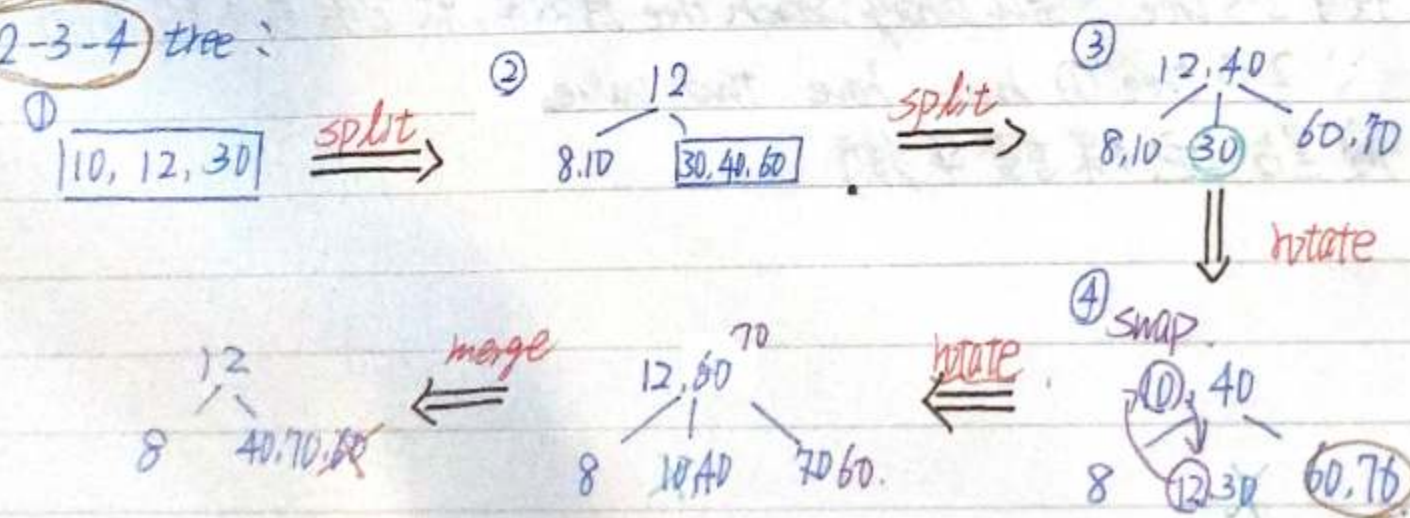 2-3-4 tree:
①
10, 12, 30
split
②
12
8.10
30.40.60
split
③
12.40
8,10
30
60.70
rotate
④
swap
10, 40
8
12.30
60.70
rotate
12.60 70
8
10 40
70 60.
merge
12
8
40.70.60